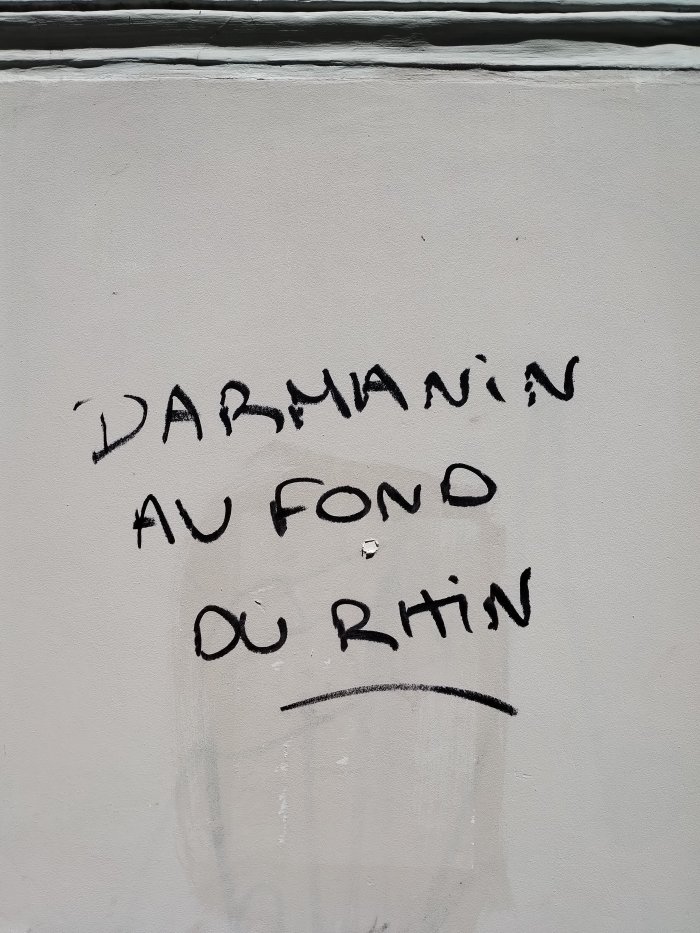 DARMANiN
AU FOND
DU RHiN